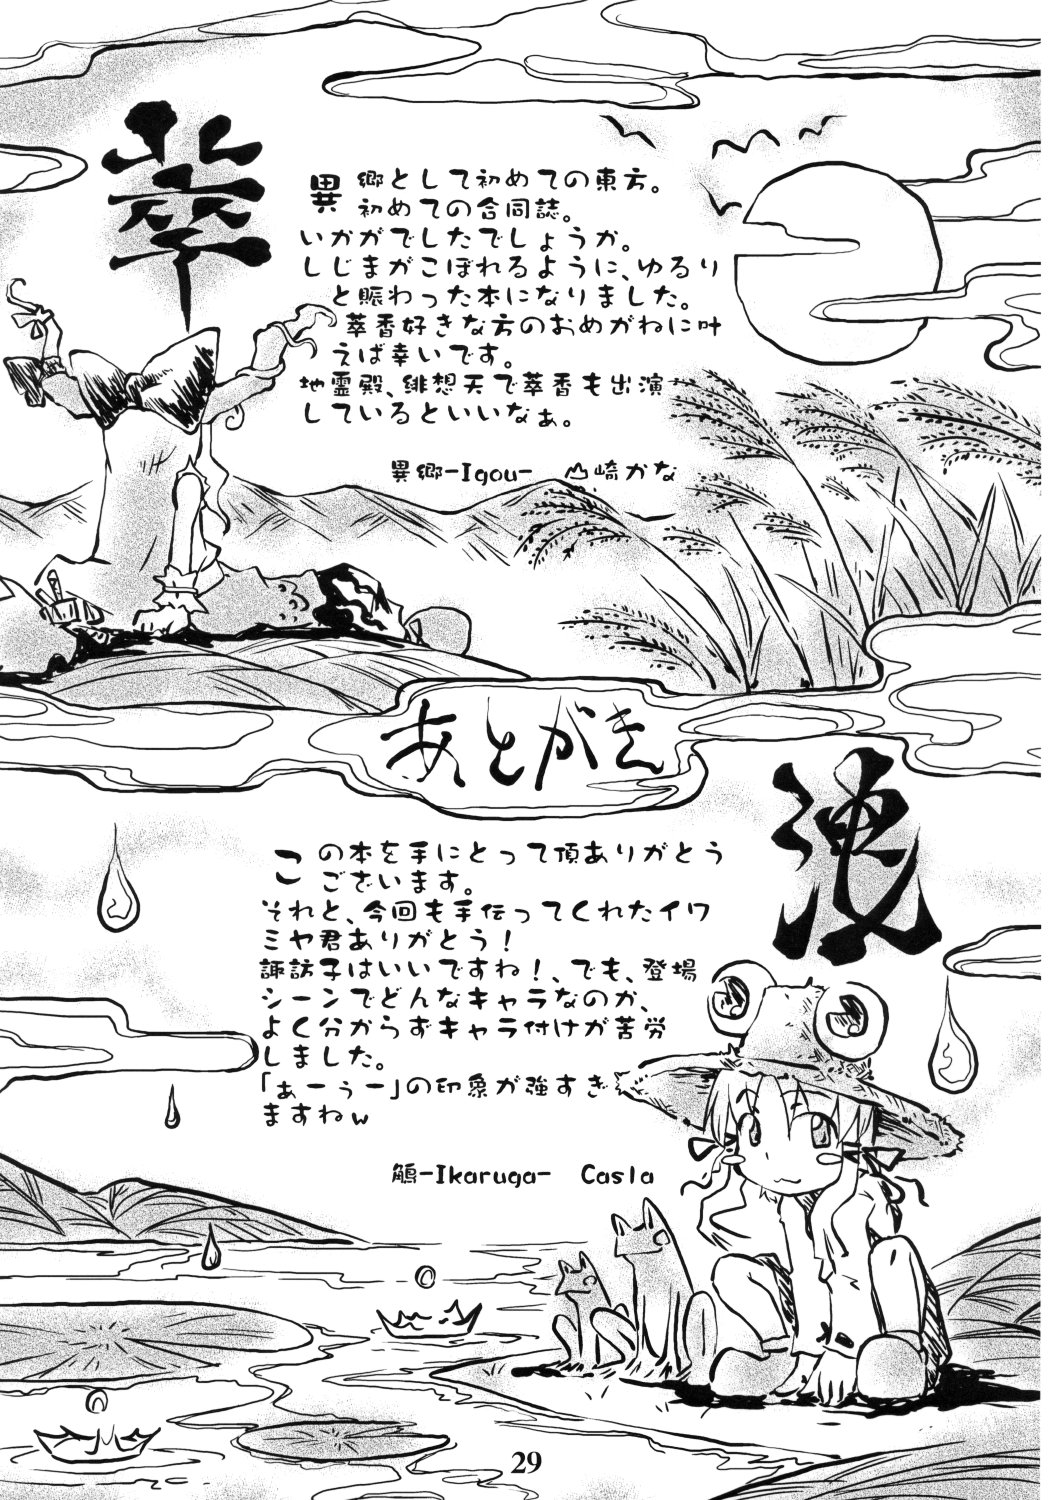 萃
異郷として初めての東方。
初めての合同誌。
いかがでしたでしょうか。
しじまがこぼれるように、ゆるり
と賑わった本になりました。
萃香好きな方のおめがねに叶
えば幸いです。
地霊殿、緋想天で萃香も出演
しているといいなぁ。
異郷-Igou- 山崎かな
あとがき
この本を手にとって頂ありがとう
ございます。
それと、今回も手伝ってくれたイワ
ミヤ君ありがとう!
諏訪子はいいですね!、でも、登場
シーンでどんなキャラなのか、
よく分からずキャラ付けが苦労
しました。
「ぁーぅー」の印象が強すぎ
ますねw
鵤-Ikaruga- Casla
29